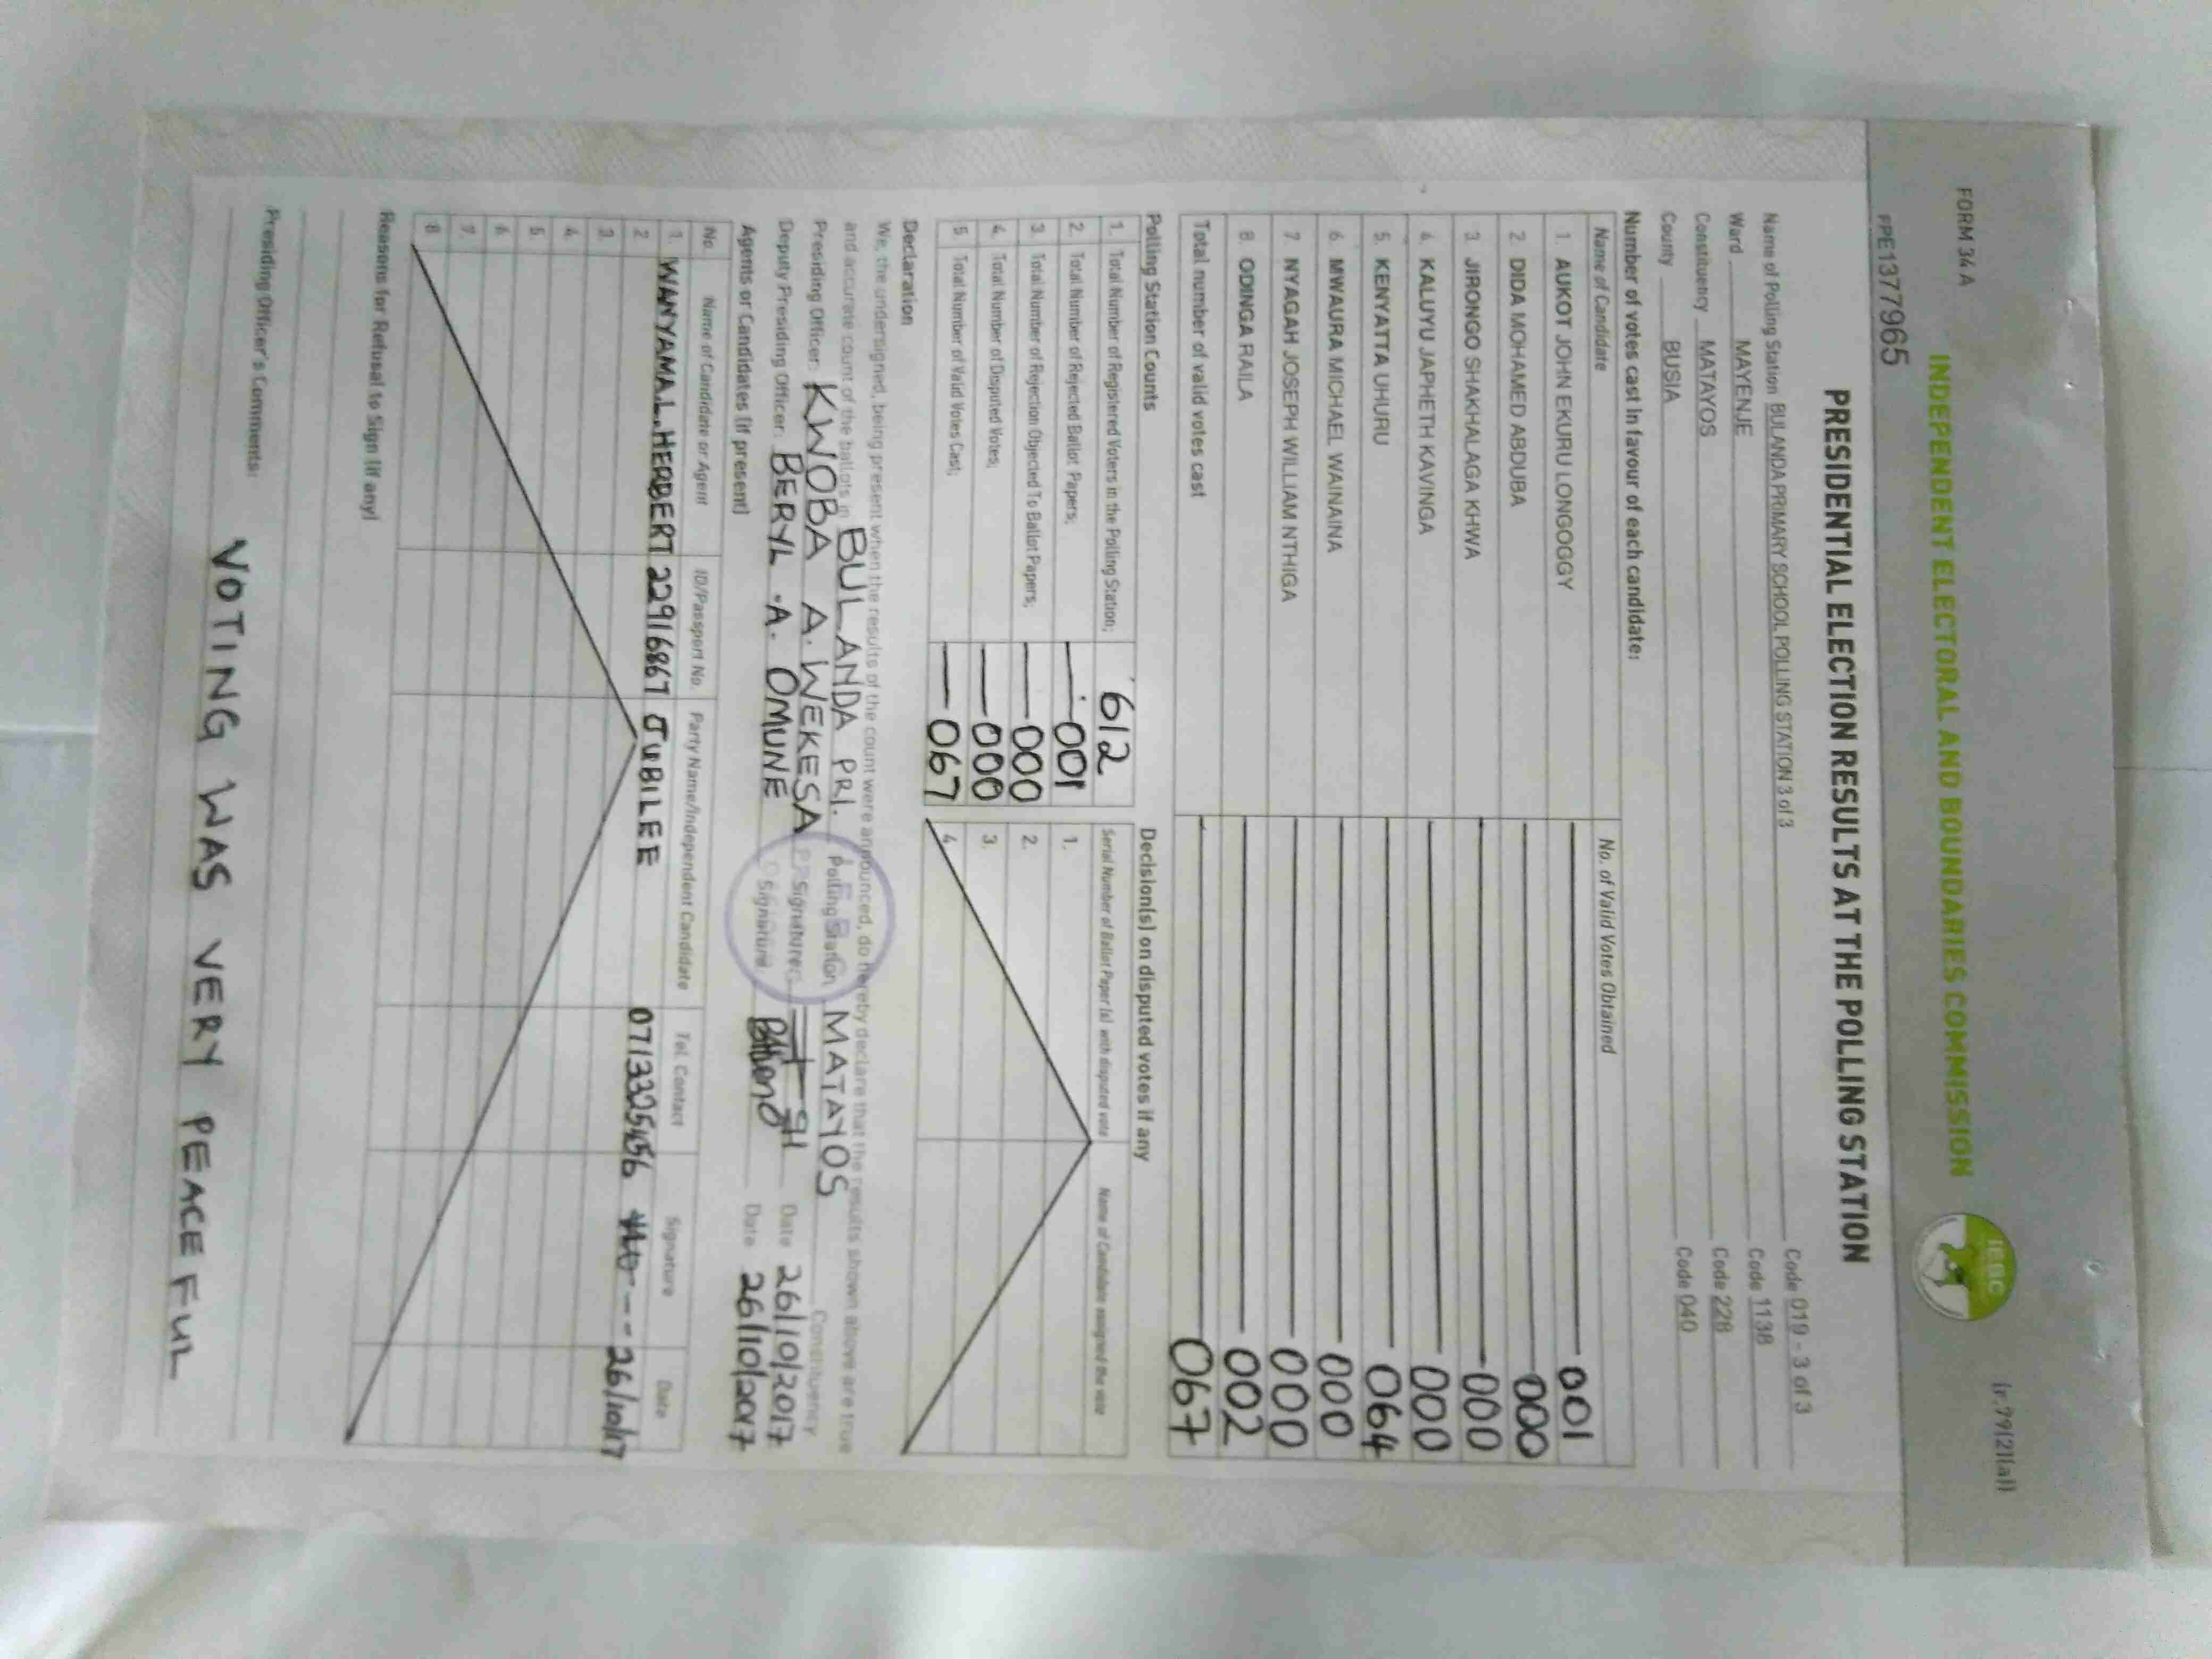 FORM 34 A
(r.79(2)(a))
INDEPENDENT ELECTORAL AND BOUNDARIES COMMISSION
iebc
PPE1377965
PRESIDENTIAL ELECTION RESULTS AT THE POLLING STATION
Name of Polling Station BULANDA PRIMARY SCHOOL POLLING STATION 3 of 3 Code 019 - 3 of 3
Ward MAYENJE Code 1138
Constituency MATAYOS Code 228
County BUSIA Code 040
Number of votes cast in favour of each candidate:
Name of Candidate No. of Valid Votes Obtained
1. AUKOT JOHN EKURU LONGOGGY 001
2. DIDA MOHAMED ABDUBA 000
3. JIRONGO SHAKHALAGA KHWA 000
4. KALUYU JAPHETH KAVINGA 000
5. KENYATTA UHURU 064
6. MWAURA MICHAEL WAINAINA 000
7. NYAGAH JOSEPH WILLIAM NTHIGA 000
8. ODINGA RAILA 002
Total number of valid votes cast 067
Polling Station Counts Decision(s) on disputed votes if any
Serial Number of Ballot Paper (s) with disputed vote Name of Candidate assigned the vote
1. Total Number of Registered Voters in the Polling Station; 612
2. Total Number of Rejected Ballot Papers; 001 1.
3. Total Number of Rejection Objected To Ballot Papers; 000 2.
4. Total Number of Disputed Votes; 000 3.
5. Total Number of Valid Votes Cast; 067 4.
Declaration
We, the undersigned, being present when the results of the count were announced, do hereby declare that the results shown above are true
and accurate count of the ballots in BULANDA PRI. Polling Station MATAYOS Constituency
Presiding Officer: KWOBA A. WEKESA Signature: Date 26/10/2017
Deputy Presiding Officer: BERYL A. OMUNE Signature: Date 26/10/2017
Agents or Candidates (if present)
No. Name of Candidate or Agent ID/Passport No. Party Name/Independent Candidate Tel. Contact Signature Date
1. WANYAMA.L.HERBERT 22916867 JUBILEE 26/10/17
2.
3.
4.
5.
6.
7.
8.
Reasons for Refusal to Sign (if any)
Presiding Officer's Comments:
VOTING WAS VERY PEACEFUL